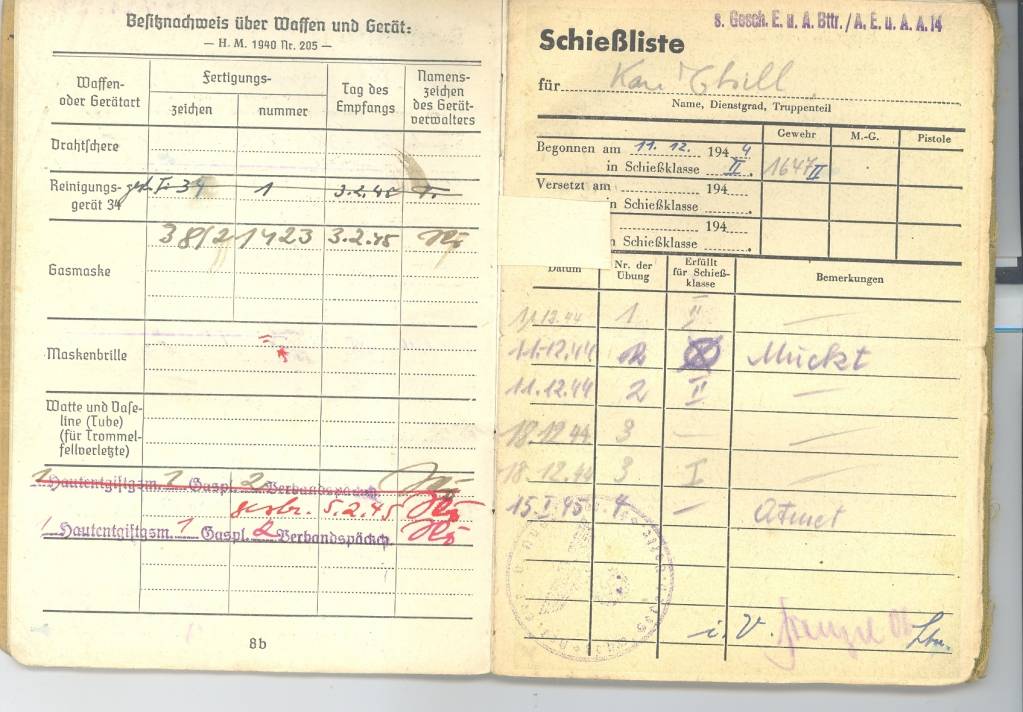 Besitznachweis über Waffen und Gerät:
— H. M. 1940 Nr. 205 —
Waffen- oder Gerätart
Fertigungs-
zeichen
nummer
Tag des Empfangs
Namens- zeichen des Gerät- verwalters
Drahtschere
Reinigungs- gerät 34
34 1 3.2.45
Gasmaske
38/2 1423 3.2.45
Maskenbrille
Watte und Vase- line (Tube) (für Trommel- fellverletzte)
1 Hautentgiftgsm. 1 Gaspl. 2 Verbandspäckch.
5.2.45
1 Hautentgiftgsm. 1 Gaspl. 2 Verbandspäckch.
8b
s. Gesch. E. u. A. Bttr./A. E. u. A. A. 14
Schießliste
für Karl
Name, Dienstgrad, Truppenteil
Gewehr
M.-G.
Pistole
Begonnen am 11. 12. 194 4
in Schießklasse II. 1647 II
Versetzt am 194
in Schießklasse
194
Schießklasse
Datum
Nr. der Übung
Erfüllt für Schieß- klasse
Bemerkungen
11.12.44 1 II —
11.12.44 2 Muckt
11.12.44 2 II —
18.12.44 3 — —
18.12.44 3 I —
15.I.45 4 — Atmet
i. V.